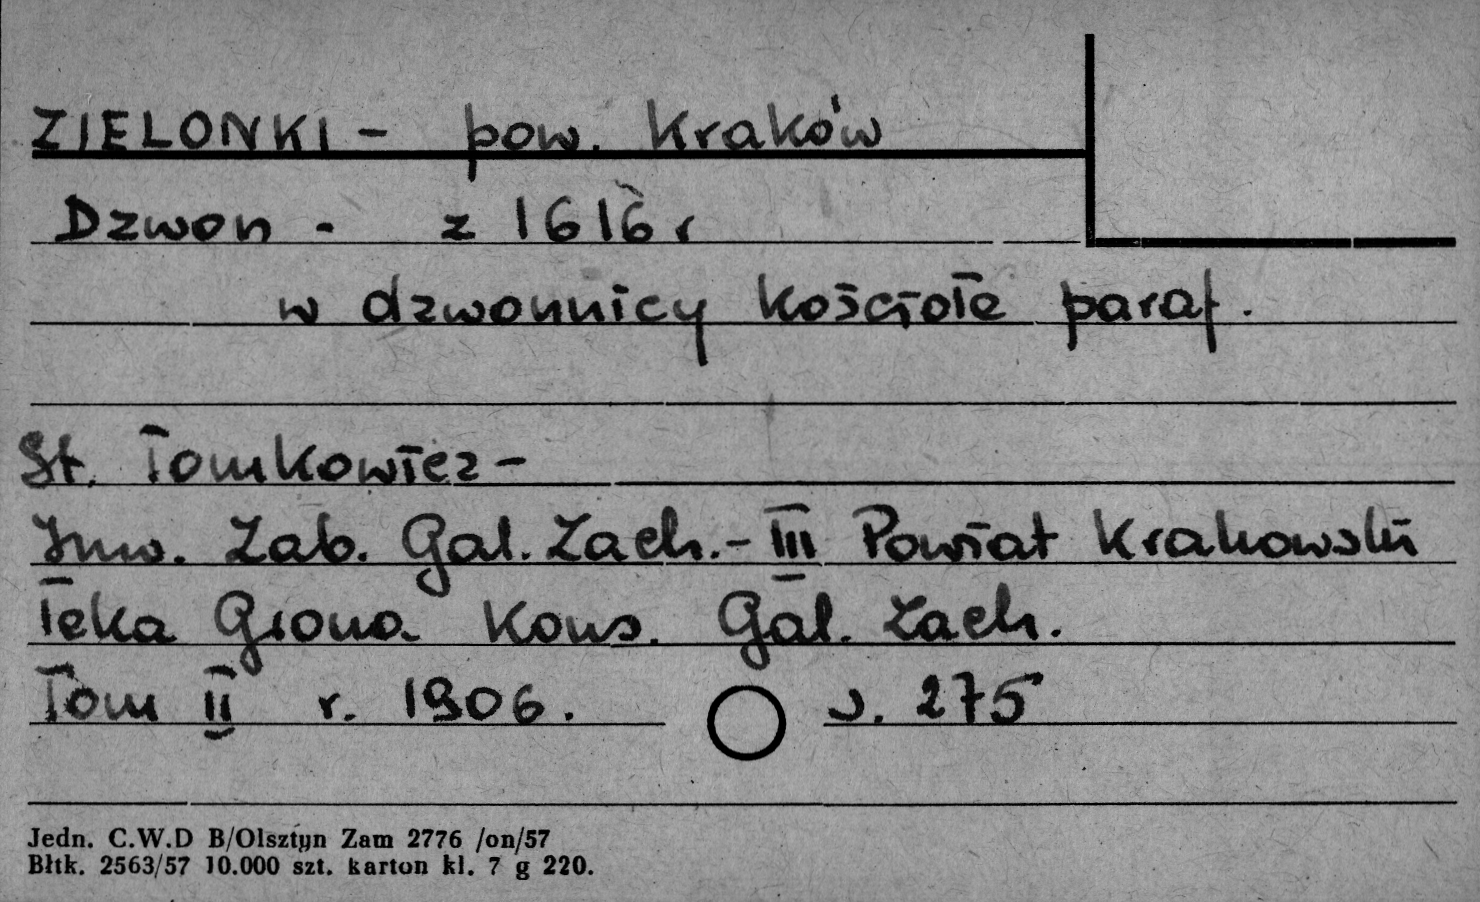 ZIELONKI - pow. Kraków
Dzwon - z 1616 r
w dzwonnicy kościołe paraf.
St. Tomkowicz -
Inw. Zab. Gal. Zach. - III Powiat Krakowski
Teka Grona Kons. Gal. Zach.
Tom II r. 1906. s. 275
Jedn. C.W.D B/Olsztyn Zam 2776 /on/57
Błtk. 2563/57 10.000 szt. karton kl. 7 g 220.